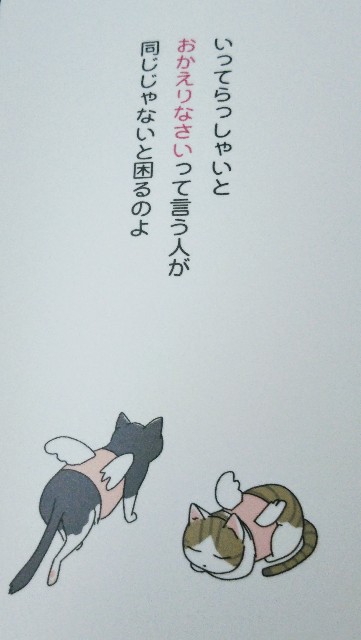 いってらっしゃいと
おかえりなさいって言う人が
同じじゃないと困るのよ